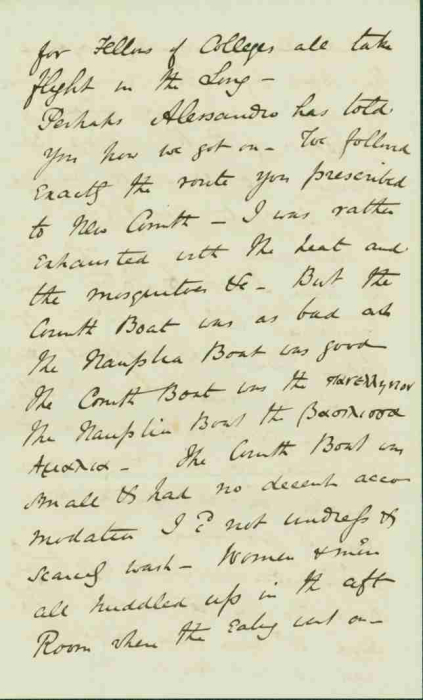 for Fellows of Colleges all take
flight in the Long –
Perhaps Alessandro has told
you how we got on – We followed
exactly the route you prescribed
to New Corinth – I was rather
exhausted with the heat and
the mosquitoes &c – But the
Corinth Boat was as bad as
the Nauplia Boat was good
The Corinth Boat was the πανελληνιον
the Nauplia Boat the Βασιλισσα
Αμαλια – The Corinth Boat was
small & had no decent acco
modation I cd not undress &
scarcely wash – Women & men
all huddled up in the aft
Room where the Eating went on –